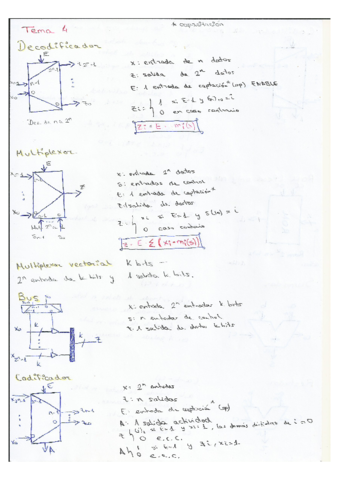 Tema 4
Decodificador
E
x: entrada de n datos
z: salida de 2ⁿ datos
E: 1 entrada de captación (op) ENABLE
zi = { 1 si E=1 y x = i
0 en caso contrario
zi = E · mi(x)
Multiplexor
E
x: entrada 2ⁿ datos
s: entradas de control
E: 1 entrada de captación
z: salida de datos
z = { xi si E=1 y s = i
0 caso contrario
z = E Σ (xi · mi(s))
Multiplexor vectorial K bits
2ⁿ entrada de k bits y 1 salida k bits.
Bus
x: entrada 2ⁿ entradas k bits
s: n entradas de control
z: 1 salida de data k bits
Codificador
E
x = 2ⁿ entradas
z: n salidas
E: entrada de captación (op)
A: 1 salida actividad
0 e.c.c.
0 e.c.c.
A